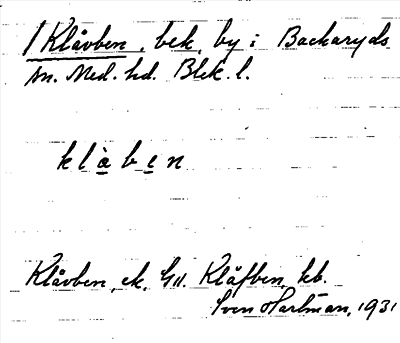 /Klåvben, bek. by i Backaryds
sn. Med. hd. Blek. l.
klàben
Klåvben, ek. G11. Klåfben, kb.
Sven Hartman, 1931